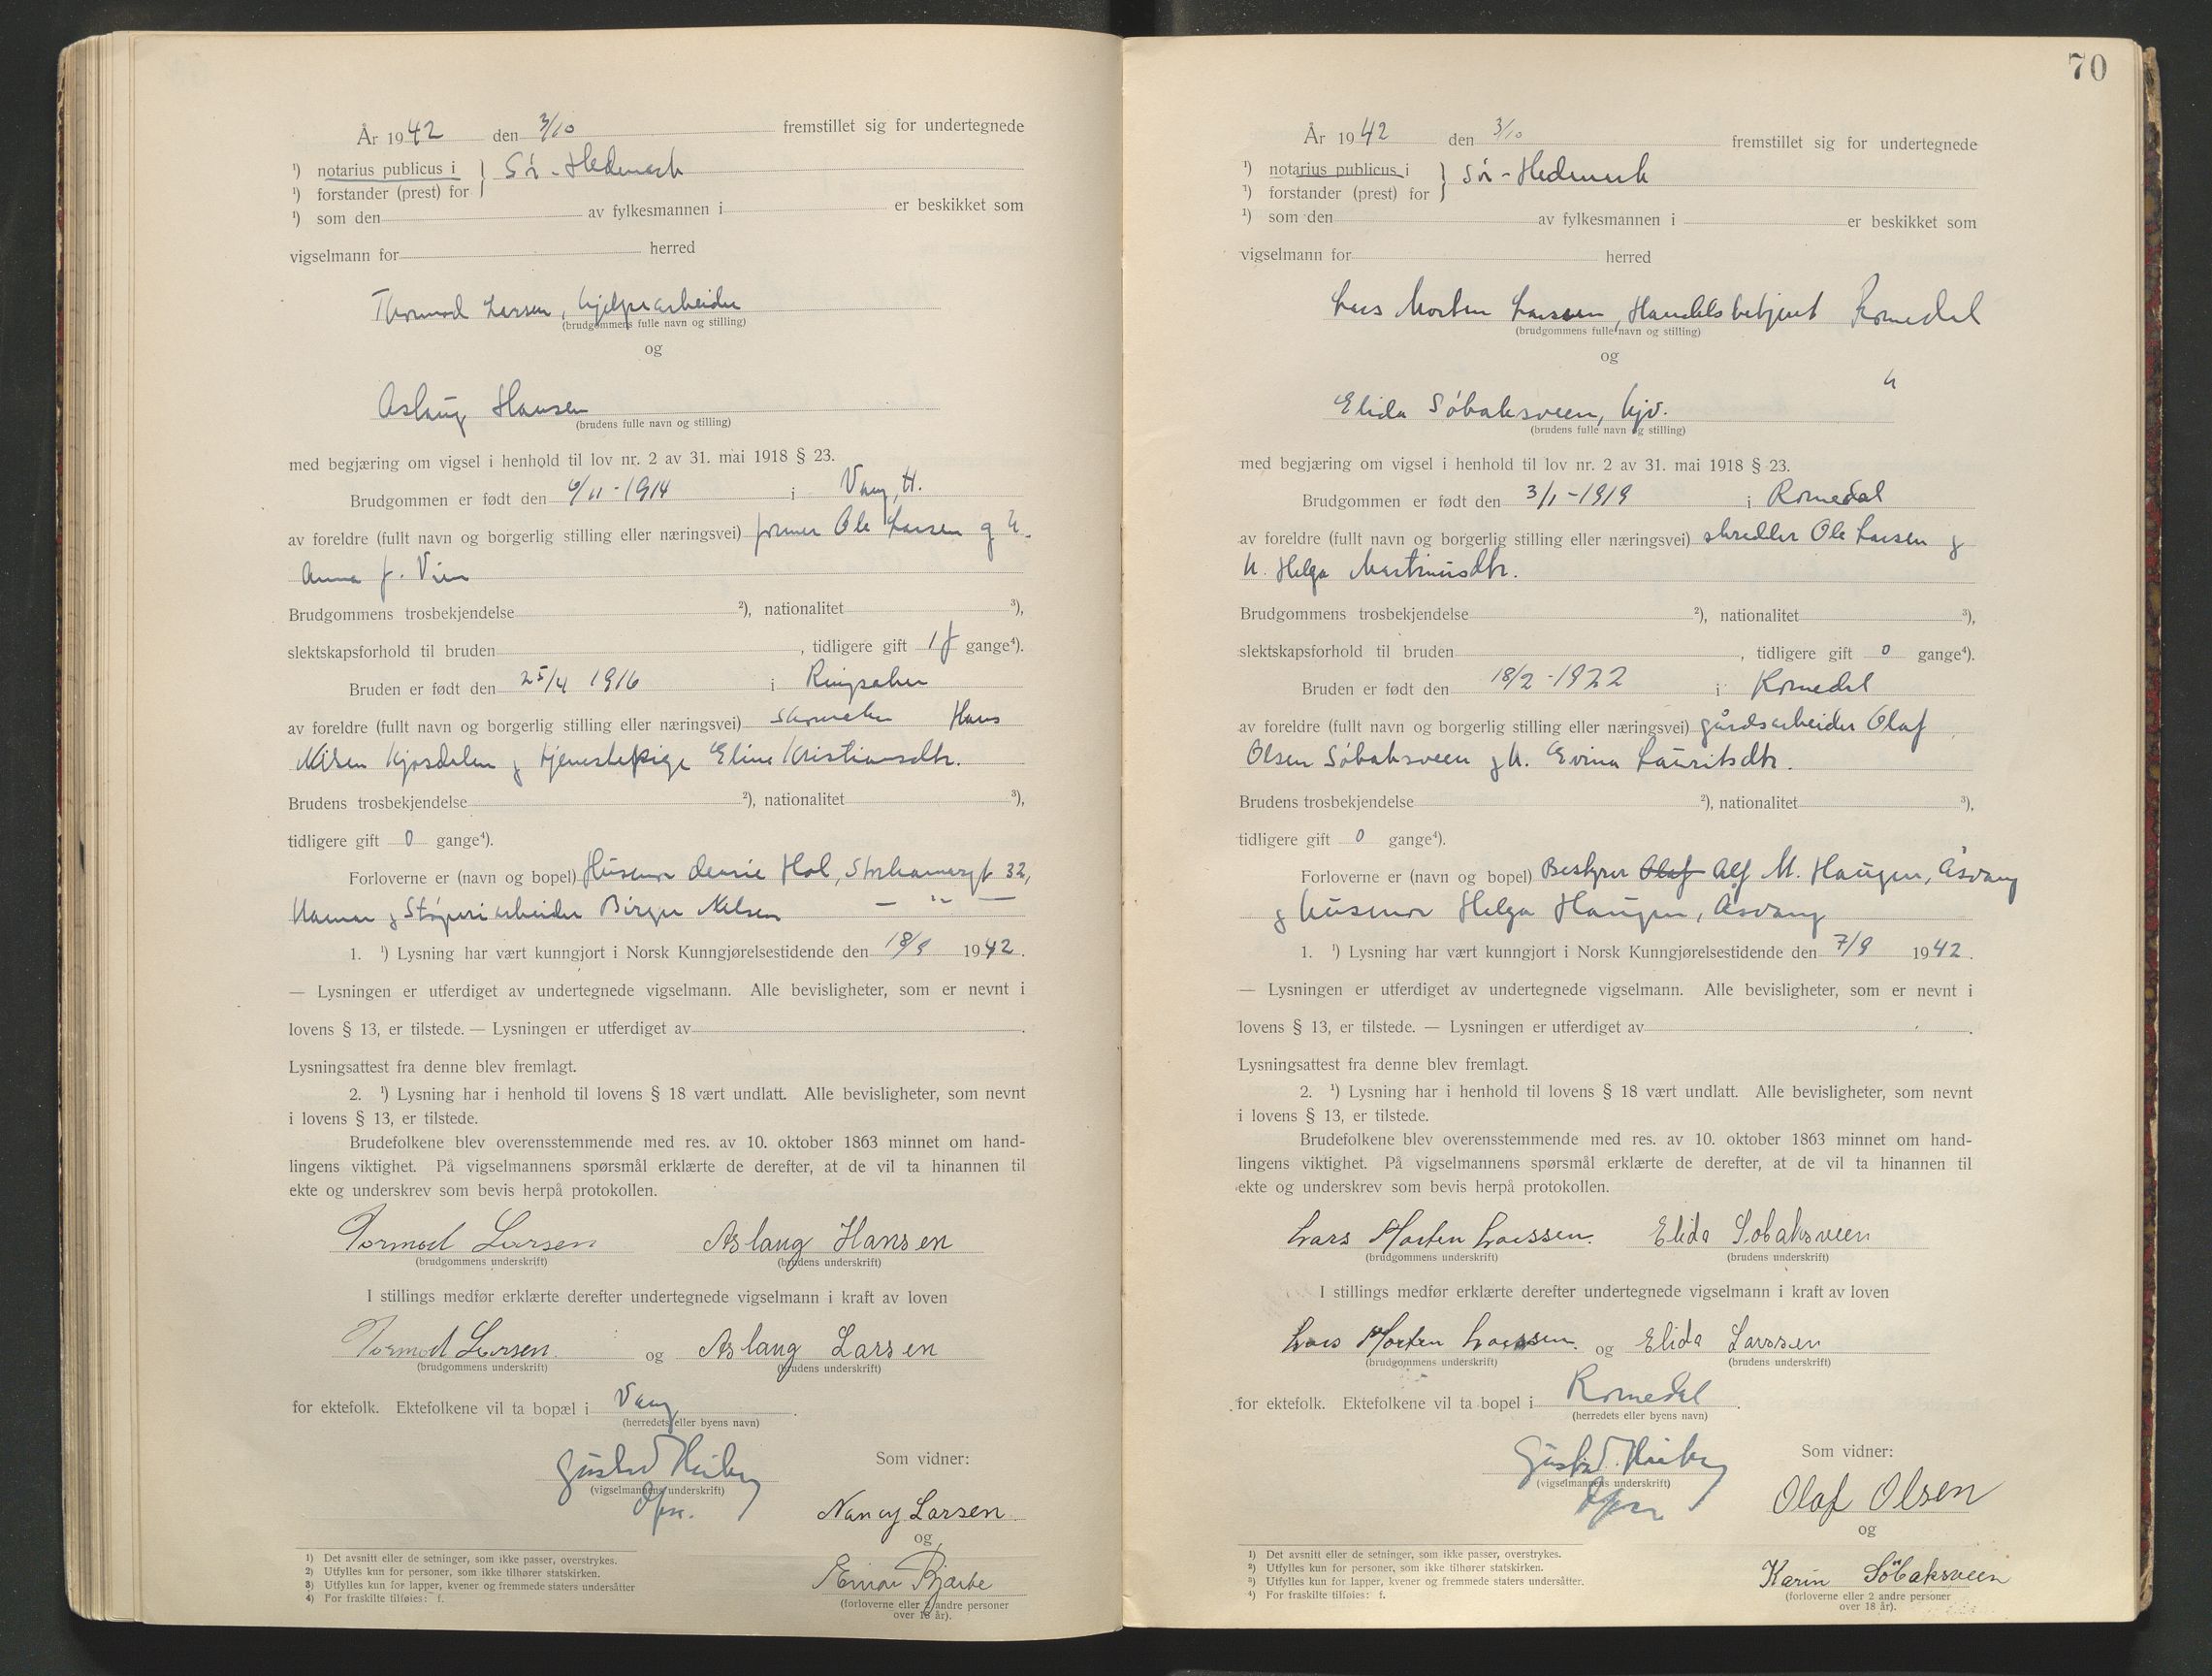 År 1942 den 3/10 fremstillet sig for undertegnede
¹) notarius publicus i } Sør-Hedmark
¹) forstander (prest) for
¹) som den av fylkesmannen i er beskikket som
vigselmann for herred
Thormod Larsen, hjelpearbeider
(brudgommens fulle navn og stilling)
og
Aslaug Hansen
(brudens fulle navn og stilling)
med begjæring om vigsel i henhold til lov nr. 2 av 31. mai 1918 § 23.
Brudgommen er født den 6/11-1914 i Vang, H.
av foreldre (fullt navn og borgerlig stilling eller næringsvei) former Ole Larsen og h.
Anna f. Vien
Brudgommens trosbekjendelse ²), nationalitet ³),
slektskapsforhold til bruden , tidligere gift 1 f gange⁴).
Bruden er født den 25/4 1916 i Ringsaker
av foreldre (fullt navn og borgerlig stilling eller næringsvei) skomaker Hans
Nilsen Kjosdalen og tjenestepige Eline Kristiansdtr.
Brudens trosbekjendelse ²), nationalitet ³),
tidligere gift 0 gange⁴).
Forloverne er (navn og bopel) Husmor Hol, Storhamargt 32,
Hamar og Støperiarbeider Birger Nilsen — " —
1. ¹) Lysning har vært kunngjort i Norsk Kunngjørelsestidende den 18/9 1942.
— Lysningen er utferdiget av undertegnede vigselmann. Alle bevisligheter, som er nevnt i
lovens § 13, er tilstede. — Lysningen er utferdiget av .
Lysningsattest fra denne blev fremlagt.
2. ¹) Lysning har i henhold til lovens § 18 vært undlatt. Alle bevisligheter, som nevnt
i lovens § 13, er tilstede.
Brudefolkene blev overensstemmende med res. av 10. oktober 1863 minnet om hand-
lingens viktighet. På vigselmannens spørsmål erklærte de derefter, at de vil ta hinannen til
ekte og underskrev som bevis herpå protokollen.
Tormod Larsen Aslaug Hansen
(brudgommens underskrift) (brudens underskrift)
I stillings medfør erklærte derefter undertegnede vigselmann i kraft av loven
Tormod Larsen og Aslaug Larsen
(brudgommens underskrift) (brudens underskrift)
for ektefolk. Ektefolkene vil ta bopæl i Vang .
(herredets eller byens navn)
Gustav Heiberg Som vidner:
(vigselmannens underskrift)
Nancy Larsen
og
Einar Bjarke
(forloverne eller 2 andre personer
over 18 år).
1) Det avsnitt eller de setninger, som ikke passer, overstrykes.
2) Utfylles kun for personer, som ikke tilhører statskirken.
3) Utfylles kun for lapper, kvener og fremmede staters undersåtter
4) For fraskilte tilføies: f.
70
År 1942 den 3/10 fremstillet sig for undertegnede
¹) notarius publicus i } Sør-Hedmark
¹) forstander (prest) for
¹) som den av fylkesmannen i er beskikket som
vigselmann for herred
Lars Morten Larssen, Handelsbetjent Romedal
(brudgommens fulle navn og stilling)
og
"
Elida Søbaksveen, hjv.
(brudens fulle navn og stilling)
med begjæring om vigsel i henhold til lov nr. 2 av 31. mai 1918 § 23.
Brudgommen er født den 3/1-1919 i Romedal
av foreldre (fullt navn og borgerlig stilling eller næringsvei) skredder Ole Larsen og
h. Helga Martinusdtr.
Brudgommens trosbekjendelse ²), nationalitet ³),
slektskapsforhold til bruden , tidligere gift 0 gange⁴).
Bruden er født den 18/2-1922 i Romedal
av foreldre (fullt navn og borgerlig stilling eller næringsvei) gårdsarbeider Olaf
Olsen Søbaksveen og h. Evina Lauritsdtr.
Brudens trosbekjendelse ²), nationalitet ³),
tidligere gift 0 gange⁴).
Forloverne er (navn og bopel) Bestyrer Olaf Alf M. Haugen, Åsvang
og husmor Helga Haugen, Åsvang
1. ¹) Lysning har vært kunngjort i Norsk Kunngjørelsestidende den 7/9 1942.
— Lysningen er utferdiget av undertegnede vigselmann. Alle bevisligheter, som er nevnt i
lovens § 13, er tilstede. — Lysningen er utferdiget av .
Lysningsattest fra denne blev fremlagt.
2. ¹) Lysning har i henhold til lovens § 18 vært undlatt. Alle bevisligheter, som nevnt
i lovens § 13, er tilstede.
Brudefolkene blev overensstemmende med res. av 10. oktober 1863 minnet om hand-
lingens viktighet. På vigselmannens spørsmål erklærte de derefter, at de vil ta hinannen til
ekte og underskrev som bevis herpå protokollen.
Lars Morten Larssen. Elida Søbaksveen
(brudgommens underskrift) (brudens underskrift)
I stillings medfør erklærte derefter undertegnede vigselmann i kraft av loven
Lars Morten Larssen. og Elida Larssen
(brudgommens underskrift) (brudens underskrift)
for ektefolk. Ektefolkene vil ta bopel i Romedal .
(herredets eller byens navn)
Gustav Heiberg Som vidner:
(vigselmannens underskrift)
Olaf Olsen
og
Karin Söbaksveen
(forloverne eller 2 andre personer
over 18 år).
1) Det avsnitt eller de setninger, som ikke passer, overstrykes.
2) Utfylles kun for personer, som ikke tilhører statskirken.
3) Utfylles kun for lapper, kvener og fremmede staters undersåtter.
4) For fraskilte tilføies: f.